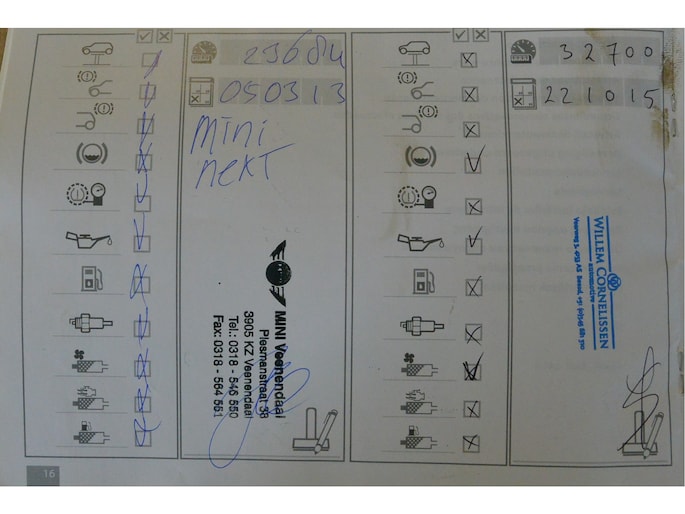 29684
050313
mini
next
MINI Veenendaal
Plesmanstraat 38
3905 KZ Veenendaal
Tel.: 0318 - 546 550
Fax: 0318 - 564 551
32700
221015
WILLEM CORNELISSEN
automotive
16